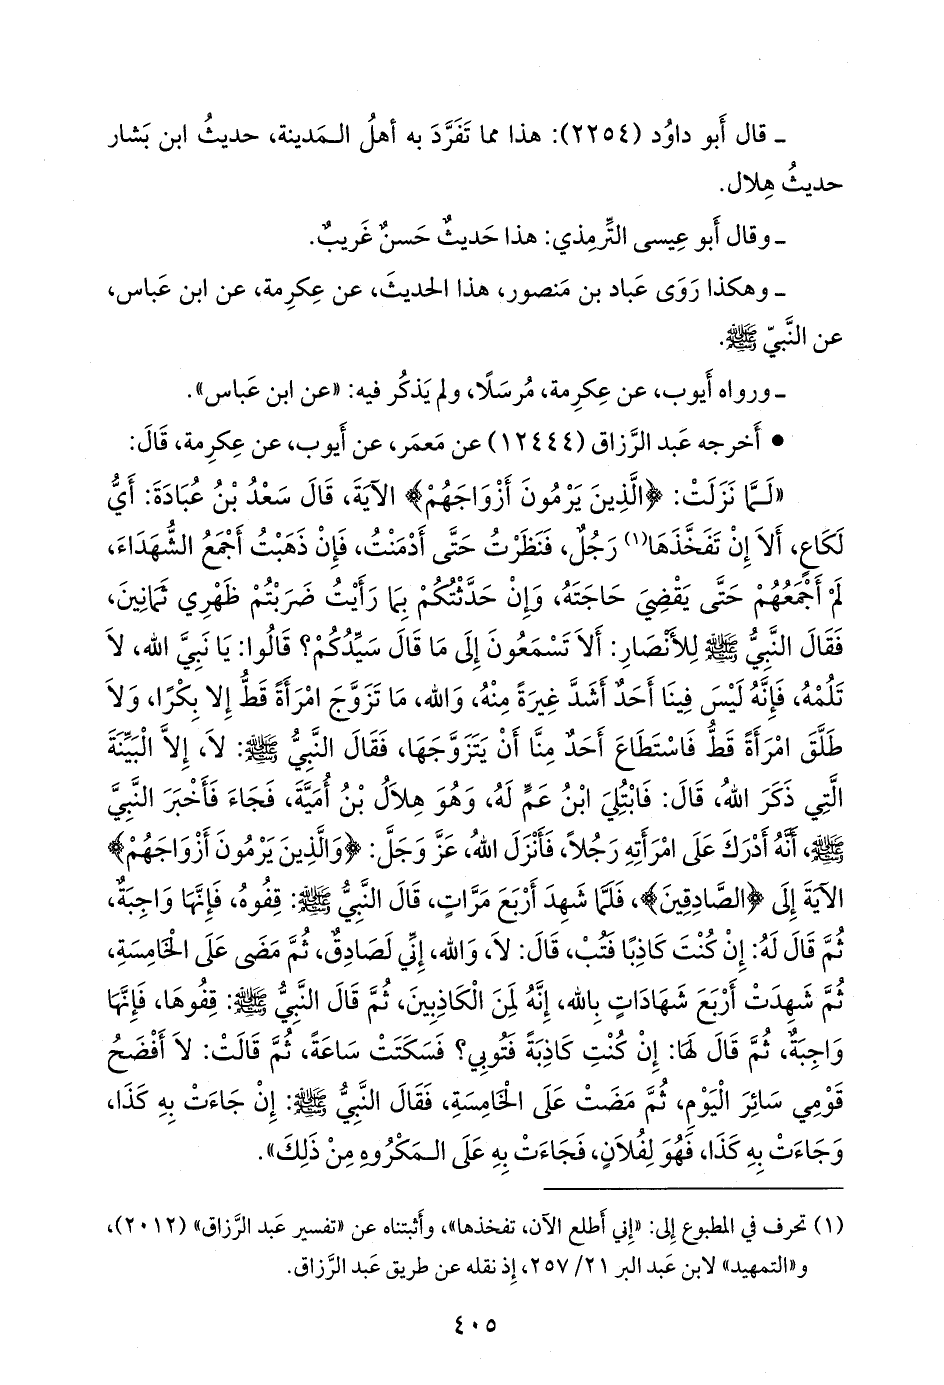 ـ قال أَبو داوُد (٢٢٥٤): هذا مما تَفَرَّدَ به أَهلُ الـمَدينة، حديثُ ابن بَشار
حديثُ هِلال.
ـ وقال أَبو عِيسى التِّرمِذي: هذا حَديثٌ حَسنٌ غَريبٌ.
ـ وهكذا رَوَى عَباد بن مَنصور، هذا الحديثَ، عن عِكرِمة، عن ابن عَباس،
عن النَّبيّ ﷺ.
ـ ورواه أَيوب، عن عِكرِمة، مُرسَلًا، ولم يَذكُر فيه: «عن ابن عَباس».
• أَخرجه عَبد الرَّزاق (١٢٤٤٤) عن مَعمَر، عن أَيوب، عن عِكرِمة، قَالَ:
«لَـمَّا نَزَلَتْ: ﴿الَّذِينَ يَرْمُونَ أَزْوَاجَهُمْ﴾ الآيَةَ، قَالَ سَعْدُ بْنُ عُبَادَةَ: أَيُّ
لَكَاعِ، أَلاَ إِنْ تَفَخَّذَهَا(١) رَجُلٌ، فَنَظَرْتُ حَتَّى أَدْمَنْتُ، فَإِنْ ذَهَبْتُ أَجْمَعُ الشُّهَدَاءَ،
لَمْ أَجْمَعُهُمْ حَتَّى يَقْضِيَ حَاجَتَهُ، وَإِنْ حَدَّثْتُكُمْ بِمَا رَأَيْتُ ضَرَبْتُمْ ظَهْرِي ثَمَانِينَ،
فَقَالَ النَّبِيُّ ﷺ لِلأَنْصَارِ: أَلاَ تَسْمَعُونَ إِلَى مَا قَالَ سَيِّدُكُمْ؟ قَالُوا: يَا نَبِيَّ الله، لاَ
تَلُمْهُ، فَإِنَّهُ لَيْسَ فِينَا أَحَدٌ أَشَدَّ غِيرَةً مِنْهُ، وَالله، مَا تَزَوَّجَ امْرَأَةً قَطُّ إِلا بِكْرًا، وَلاَ
طَلَّقَ امْرَأَةً قَطُّ فَاسْتَطَاعَ أَحَدٌ مِنَّا أَنْ يَتَزَوَّجَهَا، فَقَالَ النَّبِيُّ ﷺ: لاَ، إِلاَّ الْبَيِّنَةَ
الَّتِي ذَكَرَ اللهُ، قَالَ: فَابْتُلِيَ ابْنُ عَمٍّ لَهُ، وَهُوَ هِلاَلُ بْنُ أُمَيَّةَ، فَجَاءَ فَأَخْبَرَ النَّبِيَّ
ﷺ، أَنَّهُ أَدْرَكَ عَلَى امْرَأَتِهِ رَجُلاً، فَأَنْزَلَ اللهُ، عَزَّ وَجَلَّ: ﴿وَالَّذِينَ يَرْمُونَ أَزْوَاجَهُمْ﴾
الآيَةَ إِلَى ﴿الصَّادِقِينَ﴾، فَلَمَّا شَهِدَ أَرْبَعَ مَرَّاتٍ، قَالَ النَّبِيُّ ﷺ: قِفُوهُ، فَإِنَّهَا وَاجِبَةٌ،
ثُمَّ قَالَ لَهُ: إِنْ كُنْتَ كَاذِبًا فَتُبْ، قَالَ: لاَ، وَالله، إِنِّي لَصَادِقٌ، ثُمَّ مَضَى عَلَى الْخَامِسَةِ،
ثُمَّ شَهِدَتْ أَرْبَعَ شَهَادَاتٍ بِالله، إِنَّهُ لَمِنَ الْكَاذِبِينَ، ثُمَّ قَالَ النَّبِيُّ ﷺ: قِفُوهَا، فَإِنَّهَا
وَاجِبَةٌ، ثُمَّ قَالَ لَهَا: إِنْ كُنْتِ كَاذِبَةً فَتُوبِي؟ فَسَكَتَتْ سَاعَةً، ثُمَّ قَالَتْ: لاَ أَفْضَحُ
قَوْمِي سَائِرَ الْيَوْمِ، ثُمَّ مَضَتْ عَلَى الْخَامِسَةِ، فَقَالَ النَّبِيُّ ﷺ: إِنْ جَاءَتْ بِهِ كَذَا،
وَجَاءَتْ بِهِ كَذَا، فَهُوَ لِفُلاَنٍ، فَجَاءَتْ بِهِ عَلَى الـمَكْرُوهِ مِنْ ذَلِكَ».
(١) تحرف في المطبوع إلى: «إني أطلع الآن، تفخذها»، وأثبتناه عن «تفسير عَبد الرَّزاق» (٢٠١٢)،
و«التمهيد» لابن عَبد البر ٢١/ ٢٥٧، إذ نقله عن طريق عَبد الرَّزاق.
٤٠٥